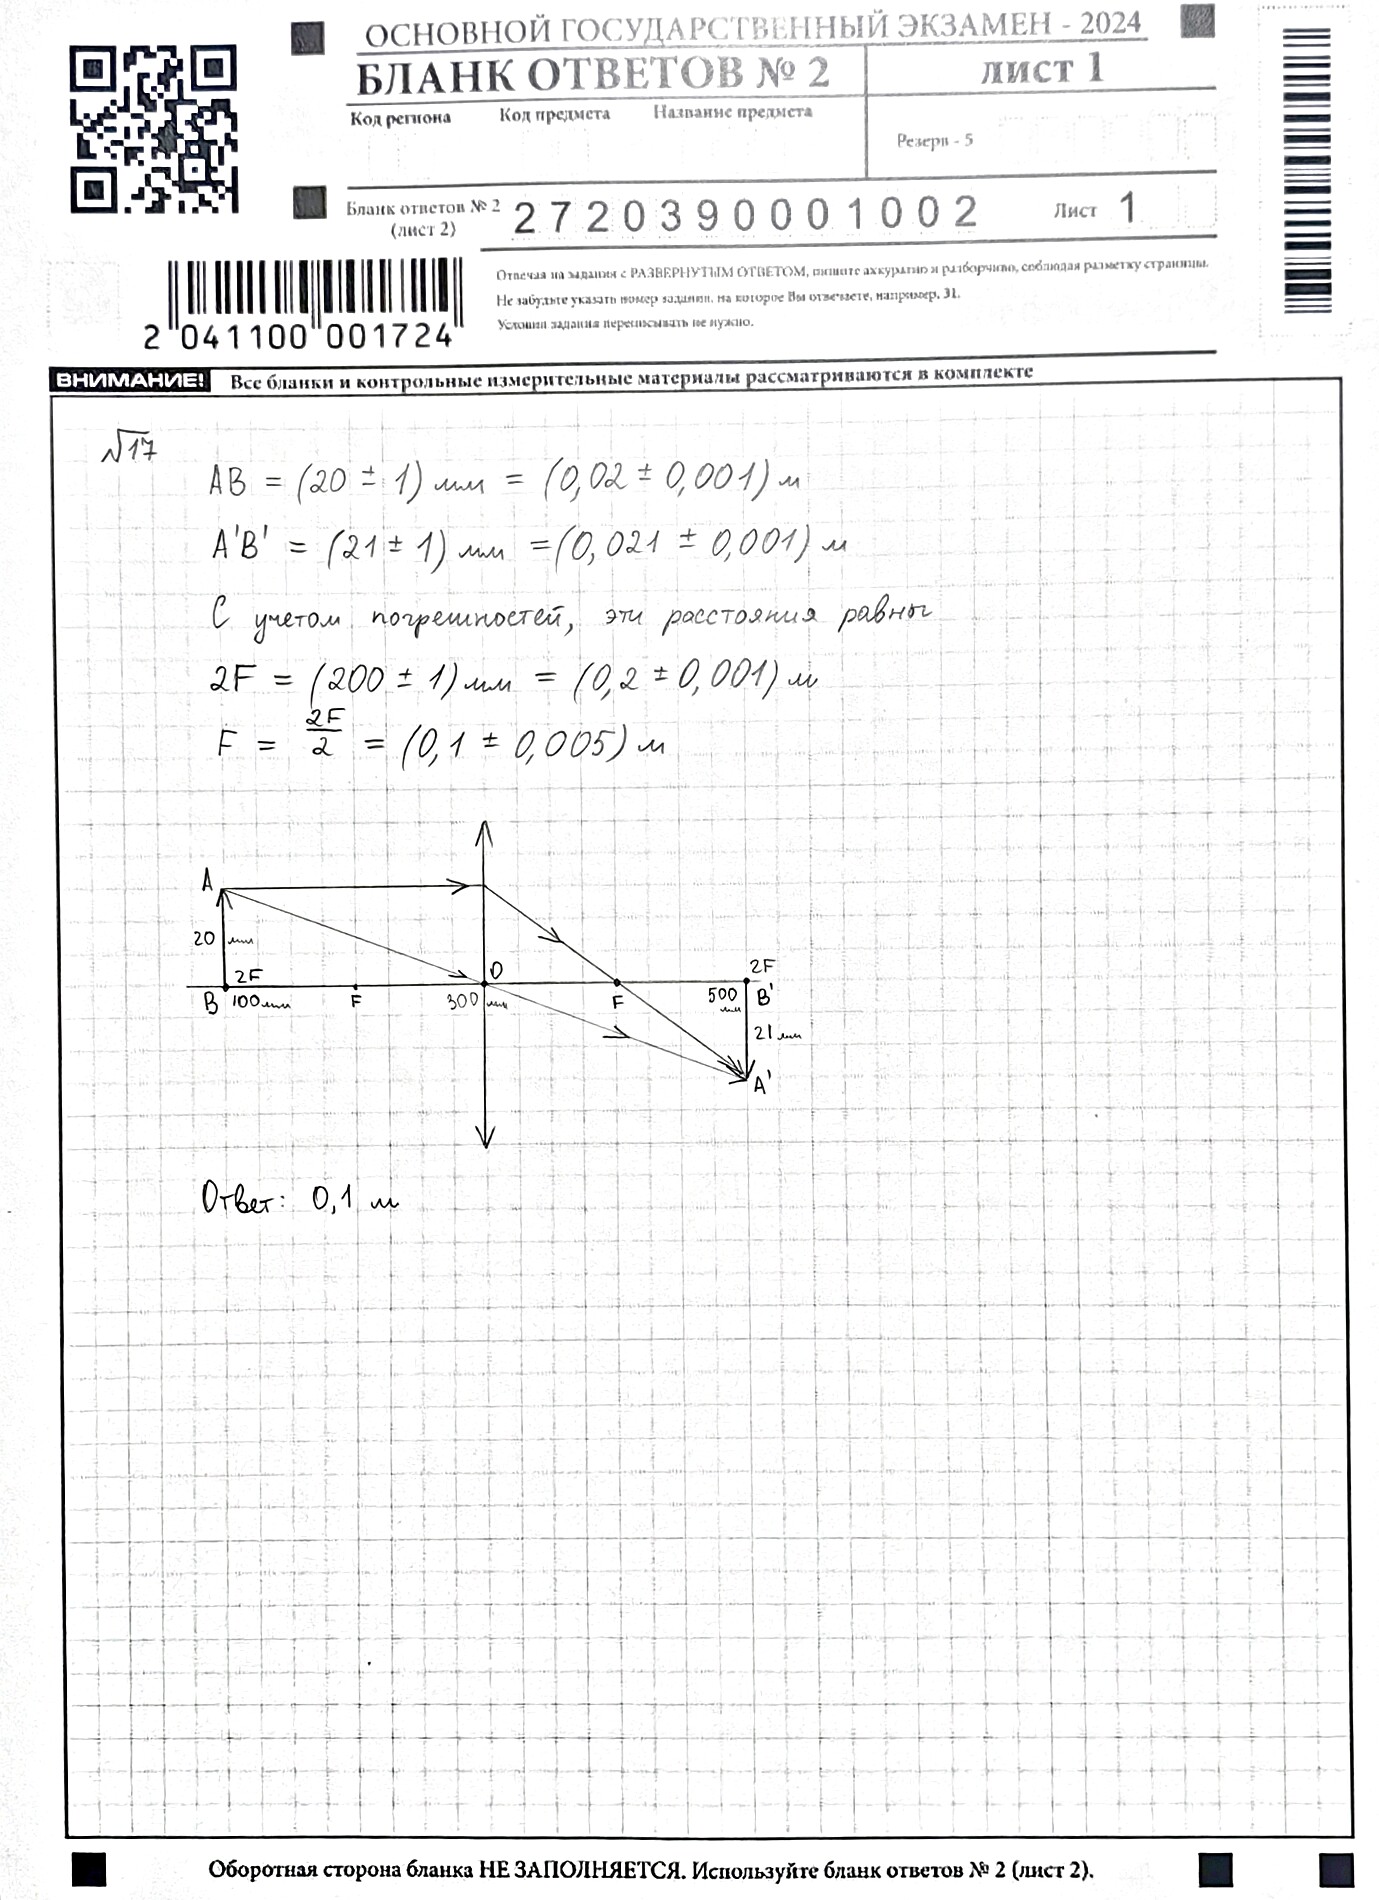 ОСНОВНОЙ ГОСУДАРСТВЕННЫЙ ЭКЗАМЕН - 2024
БЛАНК ОТВЕТОВ № 2
ЛИСТ 1
Код региона Код предмета Название предмета
Резерв - 5
Бланк ответов № 2 (лист 2)
2720390001002
Лист 1
Отвечая на задания с РАЗВЕРНУТЫМ ОТВЕТОМ, пишите аккуратно и разборчиво, соблюдая разметку страницы.
Не забудьте указать номер задания, на которое Вы отвечаете, например, 31.
Условия задания переписывать не нужно.
2 041100 001724
ВНИМАНИЕ! Все бланки и контрольные измерительные материалы рассматриваются в комплекте
√17
AB = (20 ± 1) мм = (0,02 ± 0,001) м
A'B' = (21 ± 1) мм = (0,021 ± 0,001) м
С учетом погрешностей, эти расстояния равны
2F = (200 ± 1) мм = (0,2 ± 0,001) м
F = 2F/2 = (0,1 ± 0,005) м
A
20 мм
2F
O
2F
B 100мм F 300 мм F 500 мм B'
21 мм
A'
Ответ: 0,1 м
Оборотная сторона бланка НЕ ЗАПОЛНЯЕТСЯ. Используйте бланк ответов № 2 (лист 2).